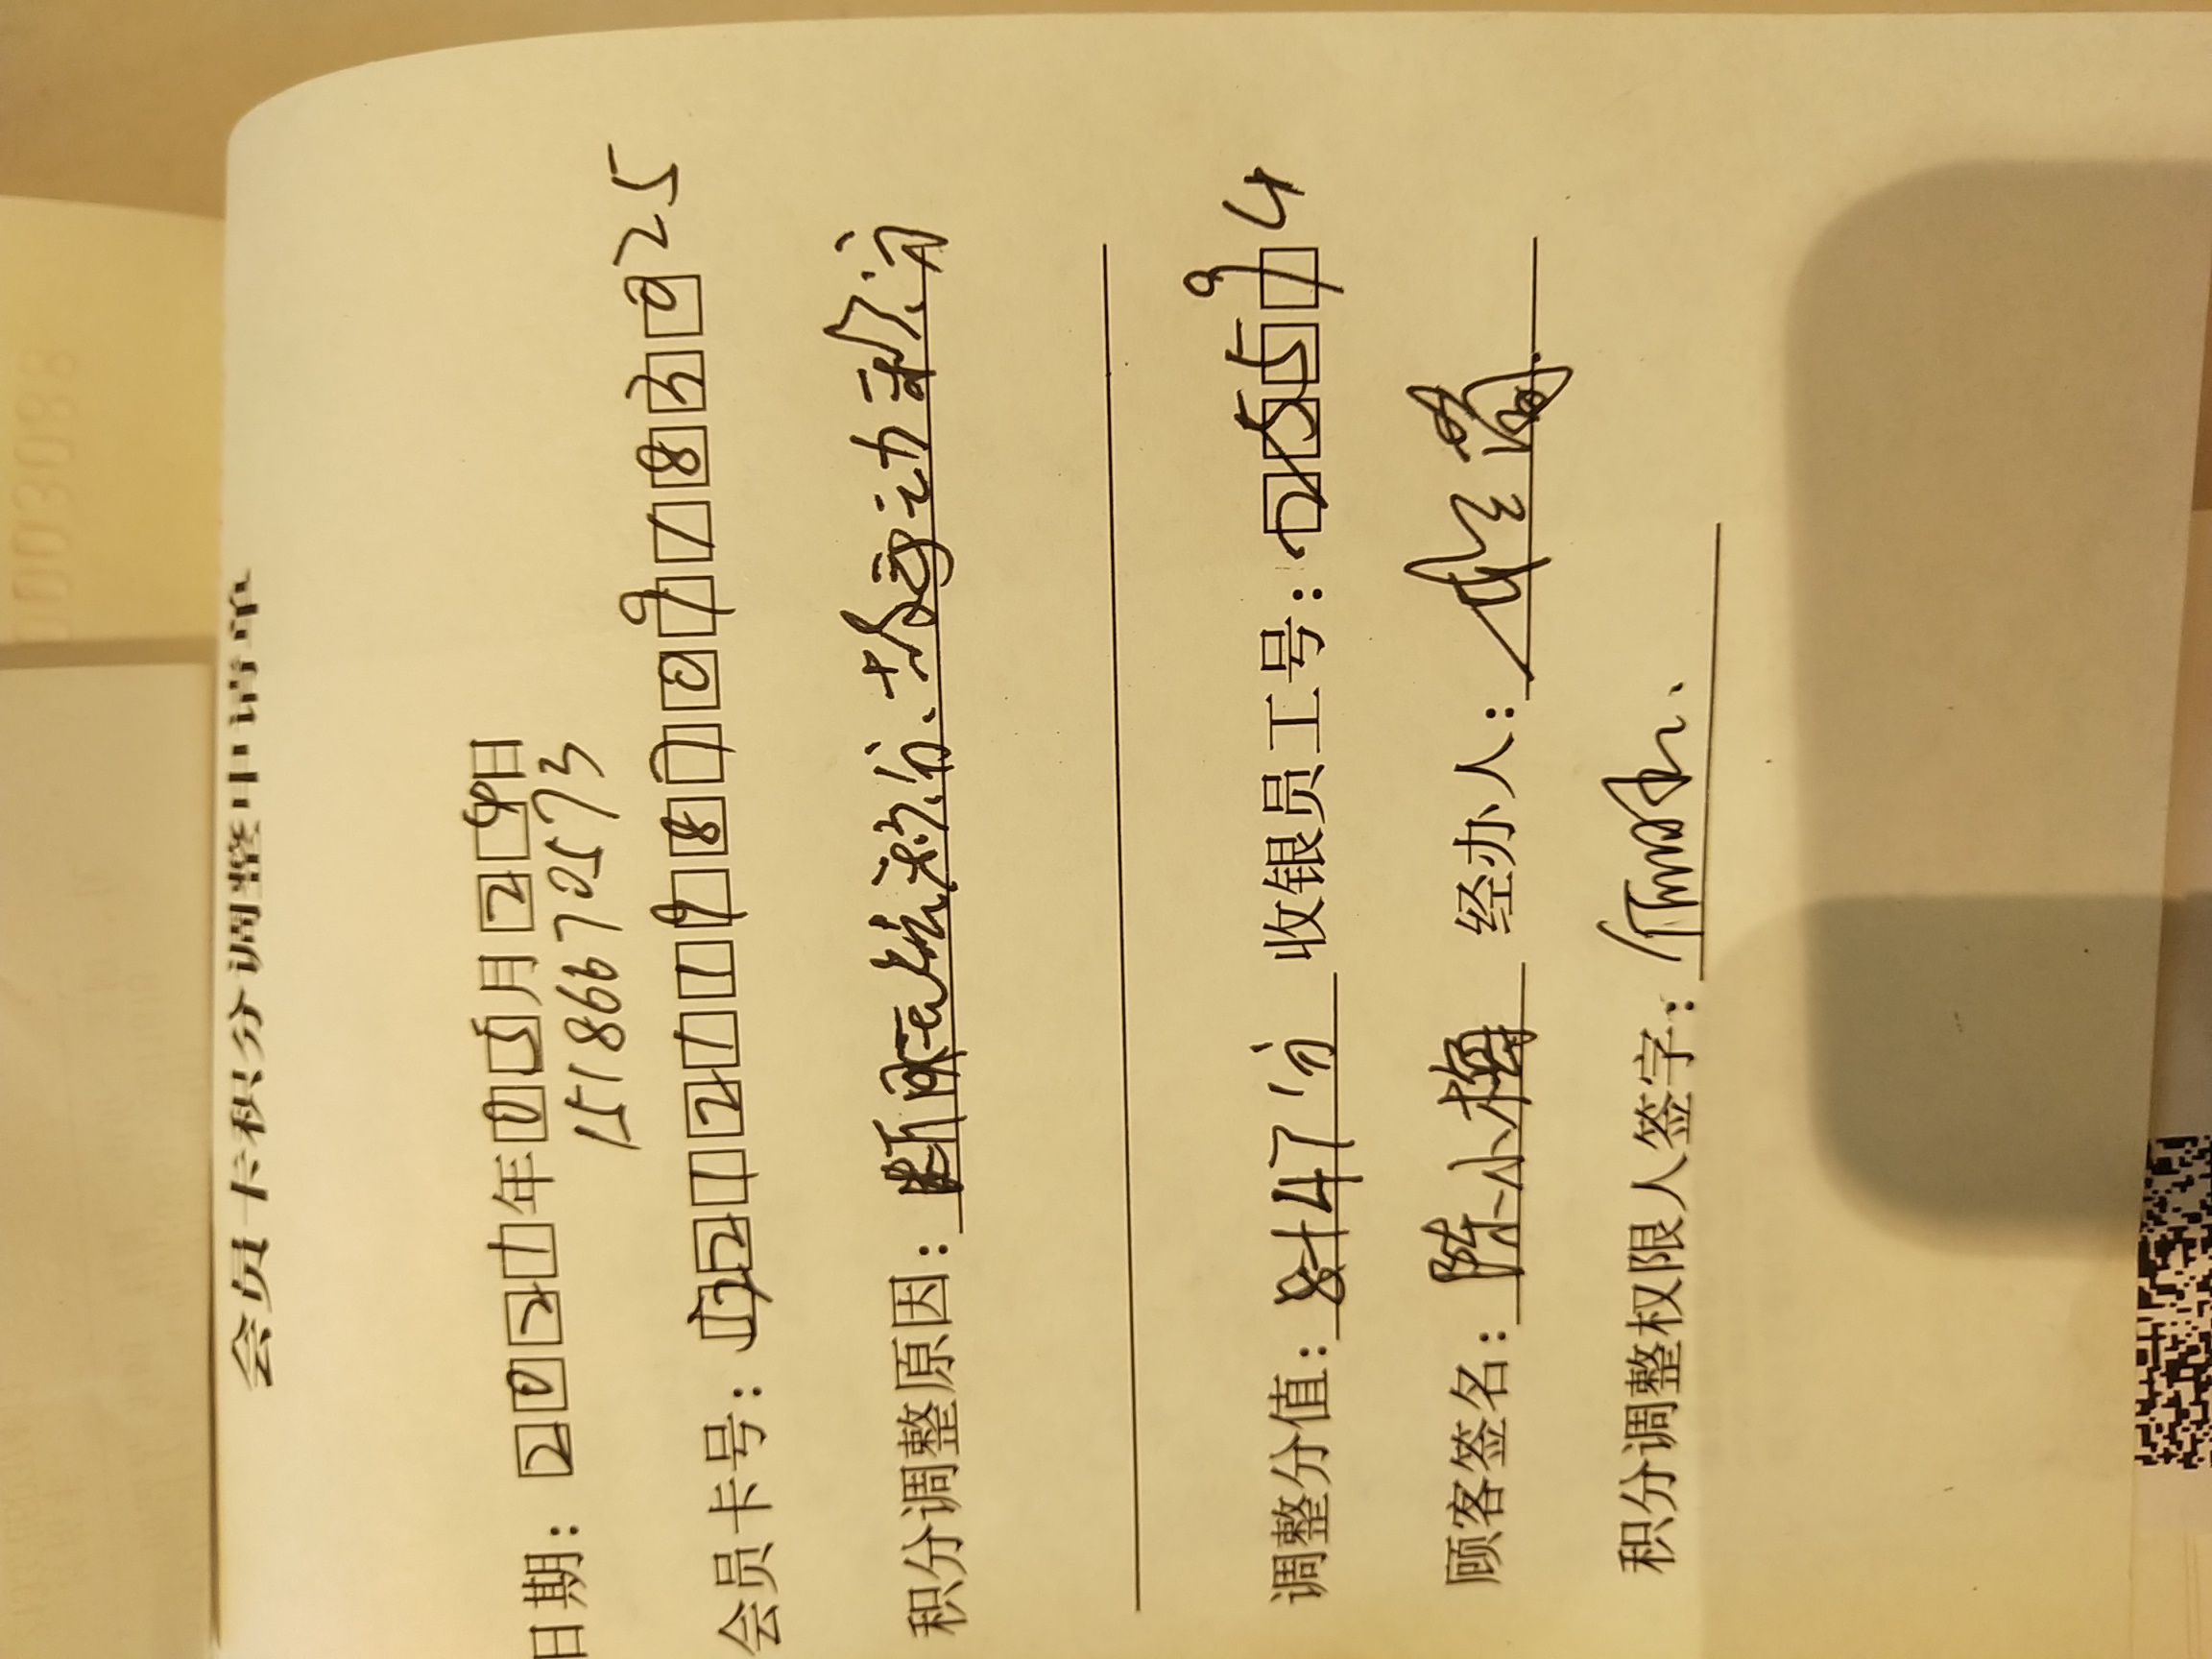 会员卡积分调整申请单
日期：2021年05月29日
15186670573
会员卡号：2121198709183025
积分调整原因：断网无法积分、故手动积分
调整分值：847分 收银员工号：25594
顾客签名：陈小梅 经办人：
积分调整权限人签字：
0003088